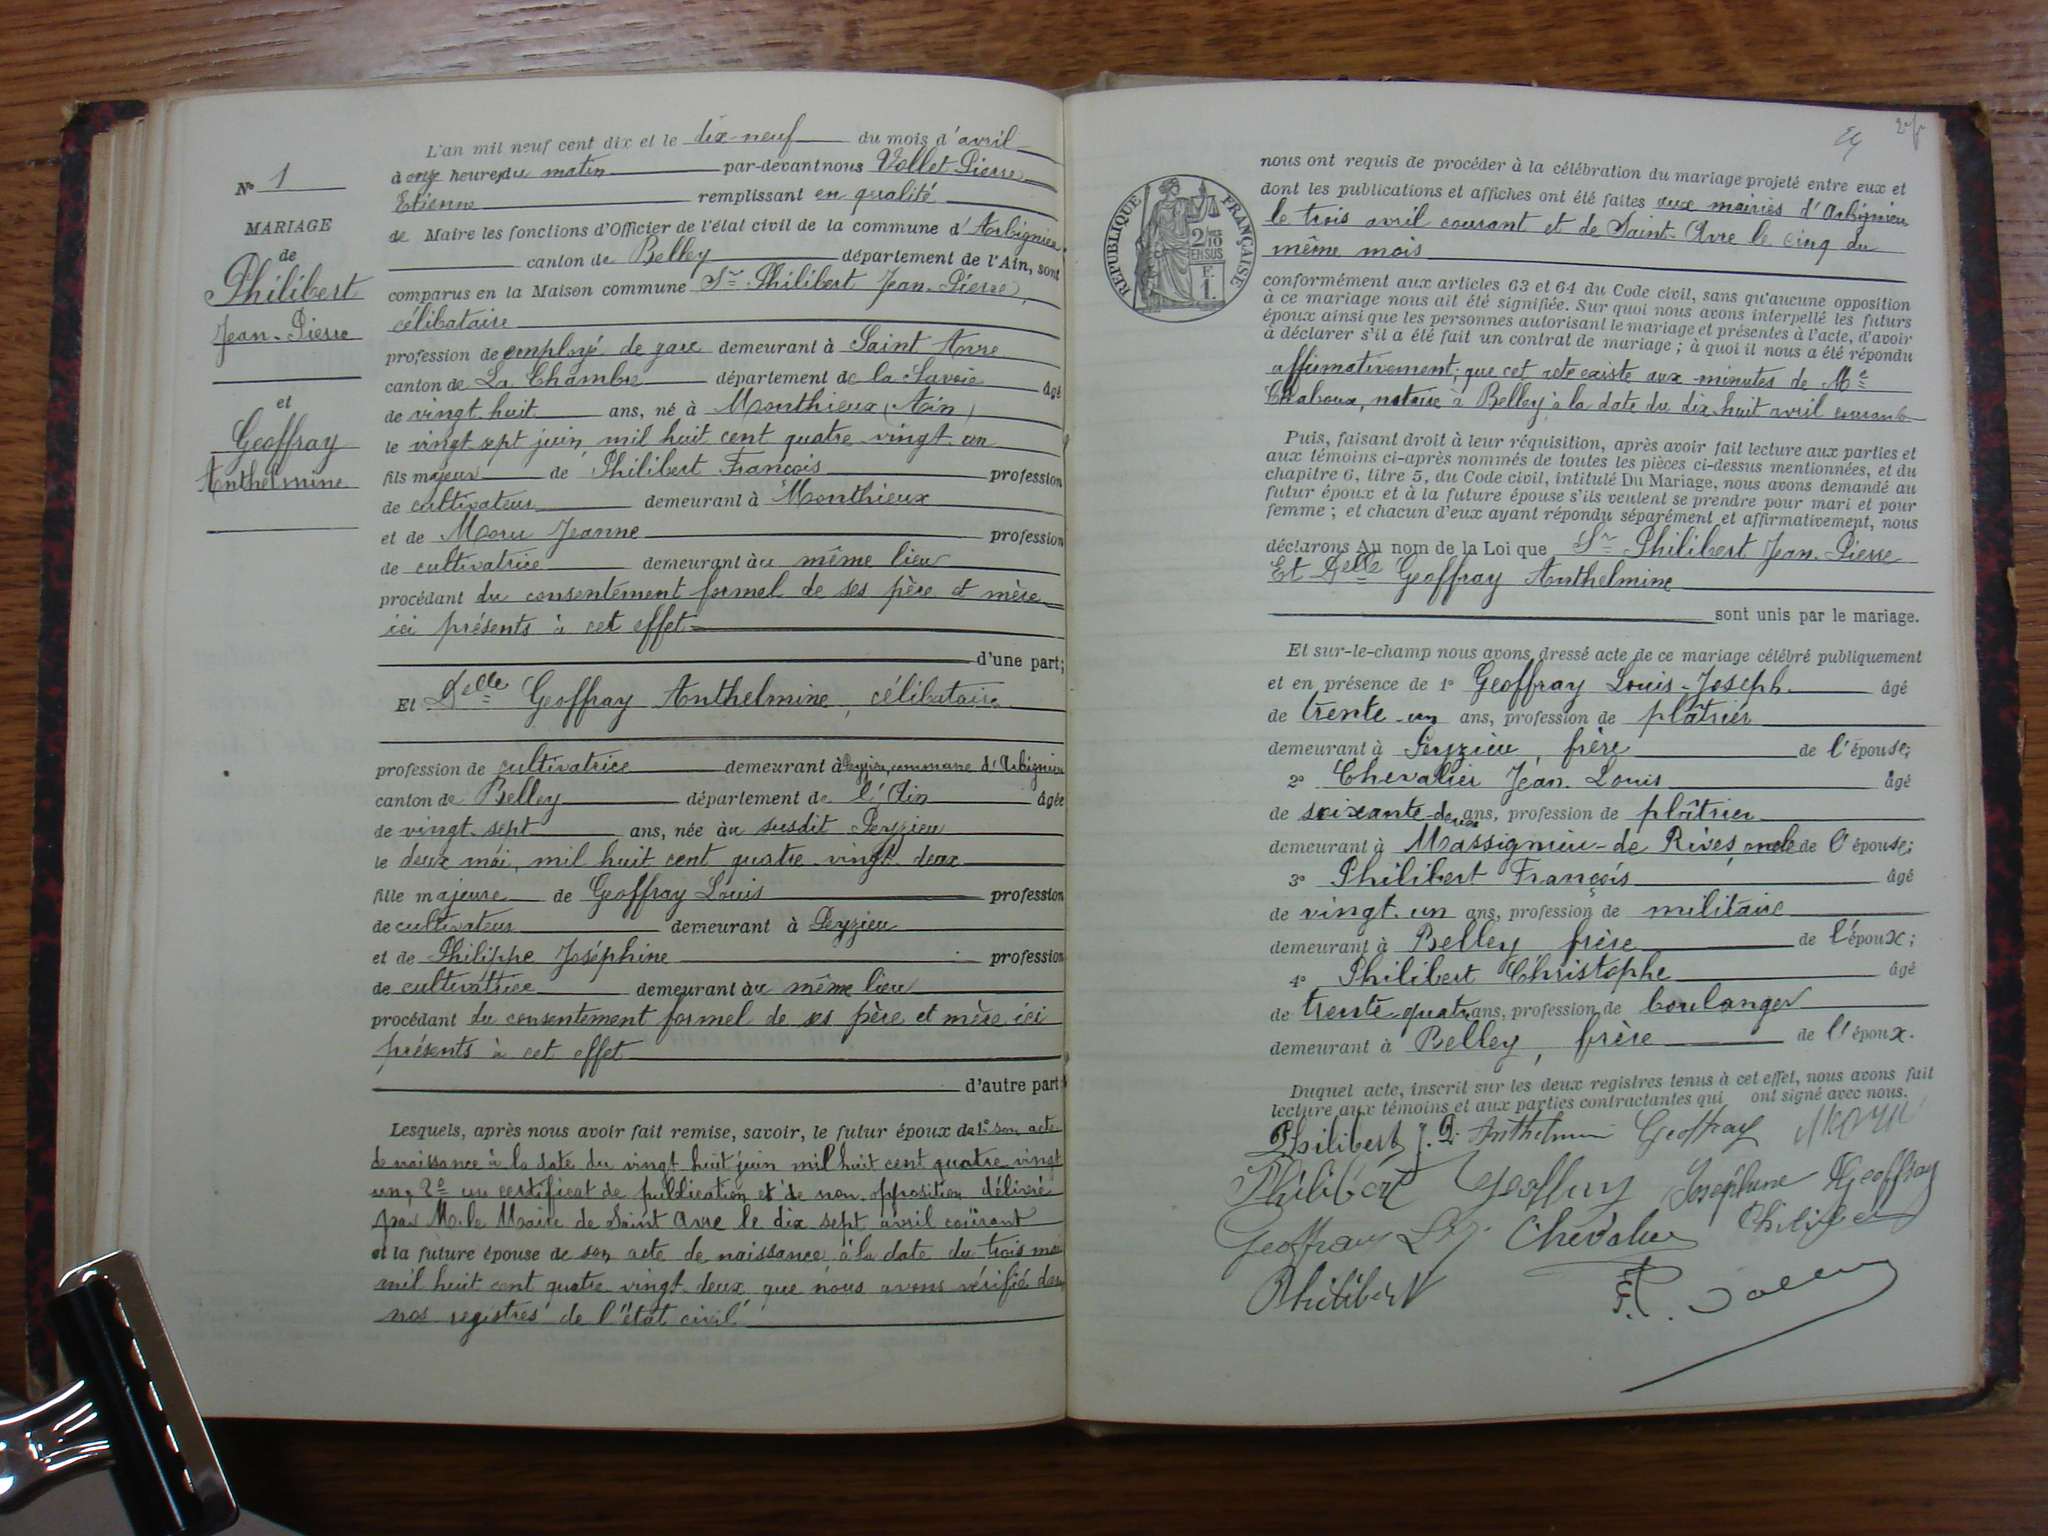 Nº 1
MARIAGE
de
Philibert
Jean-Pierre
et
Geoffray
Anthelmine
L'an mil neuf cent dix et le dix-neuf du mois d'avril
à onze heures du matin par-devant nous Vollet Pierre
Etienne remplissant en qualité
de Maire les fonctions d'Officier de l'état civil de la commune d'Arbignieu
canton de Belley département de l'Ain, sont
comparus en la Maison commune Sr Philibert Jean-Pierre,
célibataire
profession de employé de gare demeurant à Saint Avre
canton de La Chambre département de la Savoie âgé
de vingt huit ans, né à Monthieux (Ain)
le vingt sept juin mil huit cent quatre-vingt un
fils majeur de Philibert François profession
de cultivateur demeurant à Monthieux
et de Moru Jeanne profession
de cultivatrice demeurant au même lieu
procédant du consentement formel de ses père et mère
ici présents à cet effet
d'une part;
Et Delle Geoffray Anthelmine, célibataire
profession de cultivatrice demeurant à Peyzieu, commune d'Arbignieu
canton de Belley département de l'Ain âgée
de vingt-sept ans, née au susdit Peyzieu
le deux mai, mil huit cent quatre vingt deux
fille majeure de Geoffray Louis profession
de cultivateur demeurant à Peyzieu
et de Philippe Joséphine profession
de cultivatrice demeurant au même lieu
procédant du consentement formel de ses père et mère ici
présents à cet effet
d'autre part;
Lesquels, après nous avoir fait remise, savoir, le futur époux de 1º son acte
de naissance à la date du vingt huit juin mil huit cent quatre vingt
un, 2º un certificat de publication et de non-opposition délivré
par M. le Maire de Saint Avre le dix sept avril courant
et la future épouse de son acte de naissance à la date du trois mai
mil huit cent quatre vingt deux que nous avons vérifié dans
nos registres de l'état civil
RÉPUBLIQUE FRANÇAISE
2/10
EN SUS
F.
1.
nous ont requis de procéder à la célébration du mariage projeté entre eux et
dont les publications et affiches ont été faites aux mairies d'Arbignieu
le trois avril courant et de Saint-Avre le cinq du
même mois
conformément aux articles 63 et 64 du Code civil, sans qu'aucune opposition
à ce mariage nous ait été signifiée. Sur quoi nous avons interpellé les futurs
époux ainsi que les personnes autorisant le mariage et présentes à l'acte, d'avoir
à déclarer s'il a été fait un contrat de mariage; à quoi il nous a été répondu
affirmativement; que cet acte existe aux minutes de Me
Chaboux, notaire à Belley à la date du dix huit avril courant
Puis, faisant droit à leur réquisition, après avoir fait lecture aux parties et
aux témoins ci-après nommés de toutes les pièces ci-dessus mentionnées, et du
chapitre 6, titre 5, du Code civil, intitulé Du Mariage, nous avons demandé au
futur époux et à la future épouse s'ils veulent se prendre pour mari et pour
femme; et chacun d'eux ayant répondu séparément et affirmativement, nous
déclarons Au nom de la Loi que Sr Philibert Jean-Pierre
Et Delle Geoffray Anthelmine
sont unis par le mariage.
Et sur-le-champ nous avons dressé acte de ce mariage célébré publiquement
et en présence de 1º Geoffray Louis-Joseph âgé
de trente-un ans, profession de plâtrier
demeurant à Peyzieu, frère de l'épouse;
2º Chevalier Jean-Louis âgé
de soixante-deux ans, profession de plâtrier
demeurant à Massignieu-de Rives, oncle de l'épouse;
3º Philibert François âgé
de vingt-un ans, profession de militaire
demeurant à Belley frère de l'époux;
4º Philibert Christophe âgé
de trente-quatre ans, profession de boulanger
demeurant à Belley, frère de l'époux.
Duquel acte, inscrit sur les deux registres tenus à cet effet, nous avons fait
lecture aux témoins et aux parties contractantes qui ont signé avec nous.
Philibert J. P. Anthelmine Geoffray Moru
Philibert Geoffray Joséphine Geoffray
Geoffray L. J. Chevalier Philibert
Philibert